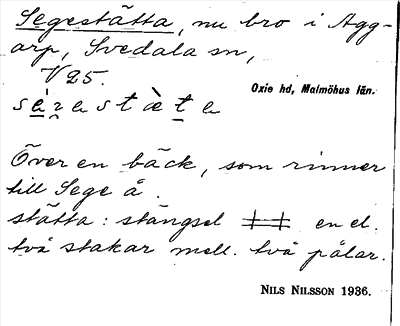 Segestätta, nu bro i Agg-
arp, Svedala sn,
V 25.
Oxie hd, Malmöhus län.
sèʒestæ̀te
Över en bäck, som rinner
till Sege å.
stätta: stängsel ǂǂ en el.
två stakar mell. två pålar.
NILS NILSSON 1936.